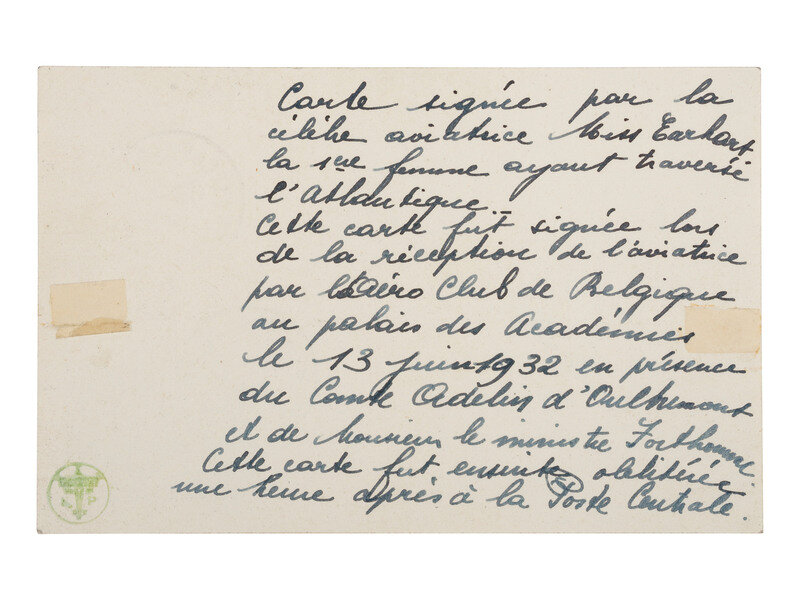 Carte signée par la
célèbre aviatrice Miss Earhart
la 1ère femme ayant traversé
l'Atlantique.
Cette carte fut signée lors
de la réception de l'aviatrice
par l'Aéro Club de Belgique
au palais des Académies
le 13 juin 1932 en présence
du Comte Adelin d'Oultremont
et de Monsieur le ministre Forthomme.
Cette carte fut ensuite oblitérée
une heure après à la Poste Centrale.